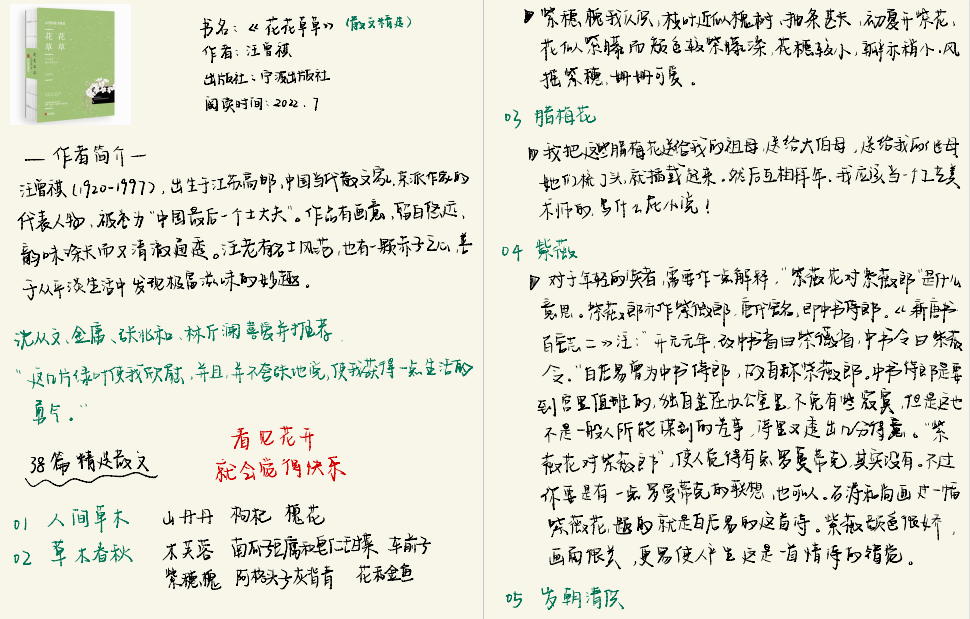 书名:《花花草草》(散文精选)
作者:汪曾祺
出版社:宁波出版社
阅读时间:2022.7
— 作者简介 —
汪曾祺(1920-1997),出生于江苏高邮,中国当代散文家,京派作家的
代表人物,被誉为"中国最后一个士大夫"。作品有画意,
韵味绵长而又清澈通透。汪老有名士风范,也有一颗赤子之心,善
于从平淡生活中发现极富滋味的妙趣。
沈从文、金庸、张兆和、林斤澜喜爱并推荐
"这几片绿叶使我欣慰,并且,并不夸张地说,使我获得一点生活的
勇气。"
看见花开
就会觉得快乐
38篇精选散文
01 人间草木 山丹丹 枸杞 槐花
02 草木春秋 木芙蓉 南瓜子豆腐和皂仁甜菜 车前子
紫穗槐 阿格头子灰背青 花和金鱼
紫穗槐我认识,枝叶近似槐树,抽条甚长,初夏开紫花,
花似紫藤而颜色较紫藤深,花穗较小,瓣亦稍小。风
摇紫穗,姗姗可爱。
03 腊梅花
我把这些腊梅花送给我的祖母,送给大伯母,送给我的继母
她们梳了头,就插戴起来。然后互相拜年。我应该当一个工艺美
术师的,写什么屁小说!
04 紫薇
对于年轻的读者,需要作一点解释,"紫薇花对紫薇郎"是什么
意思。紫薇郎亦作紫微郎,唐代官名,即中书侍郎。《新唐书
百官志二》注:"开元元年,改中书省曰紫微省,中书令曰紫微
令。"白居易曾为中书侍郎,故自称紫薇郎。中书侍郎是要
到宫里值班的,独自坐在办公室里,不免有些寂寞,但是这也
不是一般人所能谋到的差事,诗里又透出几分得意。"紫
薇花对紫薇郎",使人觉得有点罗曼蒂克,其实没有。不过
你要是有一点罗曼蒂克的联想,也可以。石涛和尚画过一幅
紫薇花,题的就是白居易的这首诗。紫薇颜色很娇,
画面很美,更易使人产生这是一首情诗的错觉。
05 岁朝清供